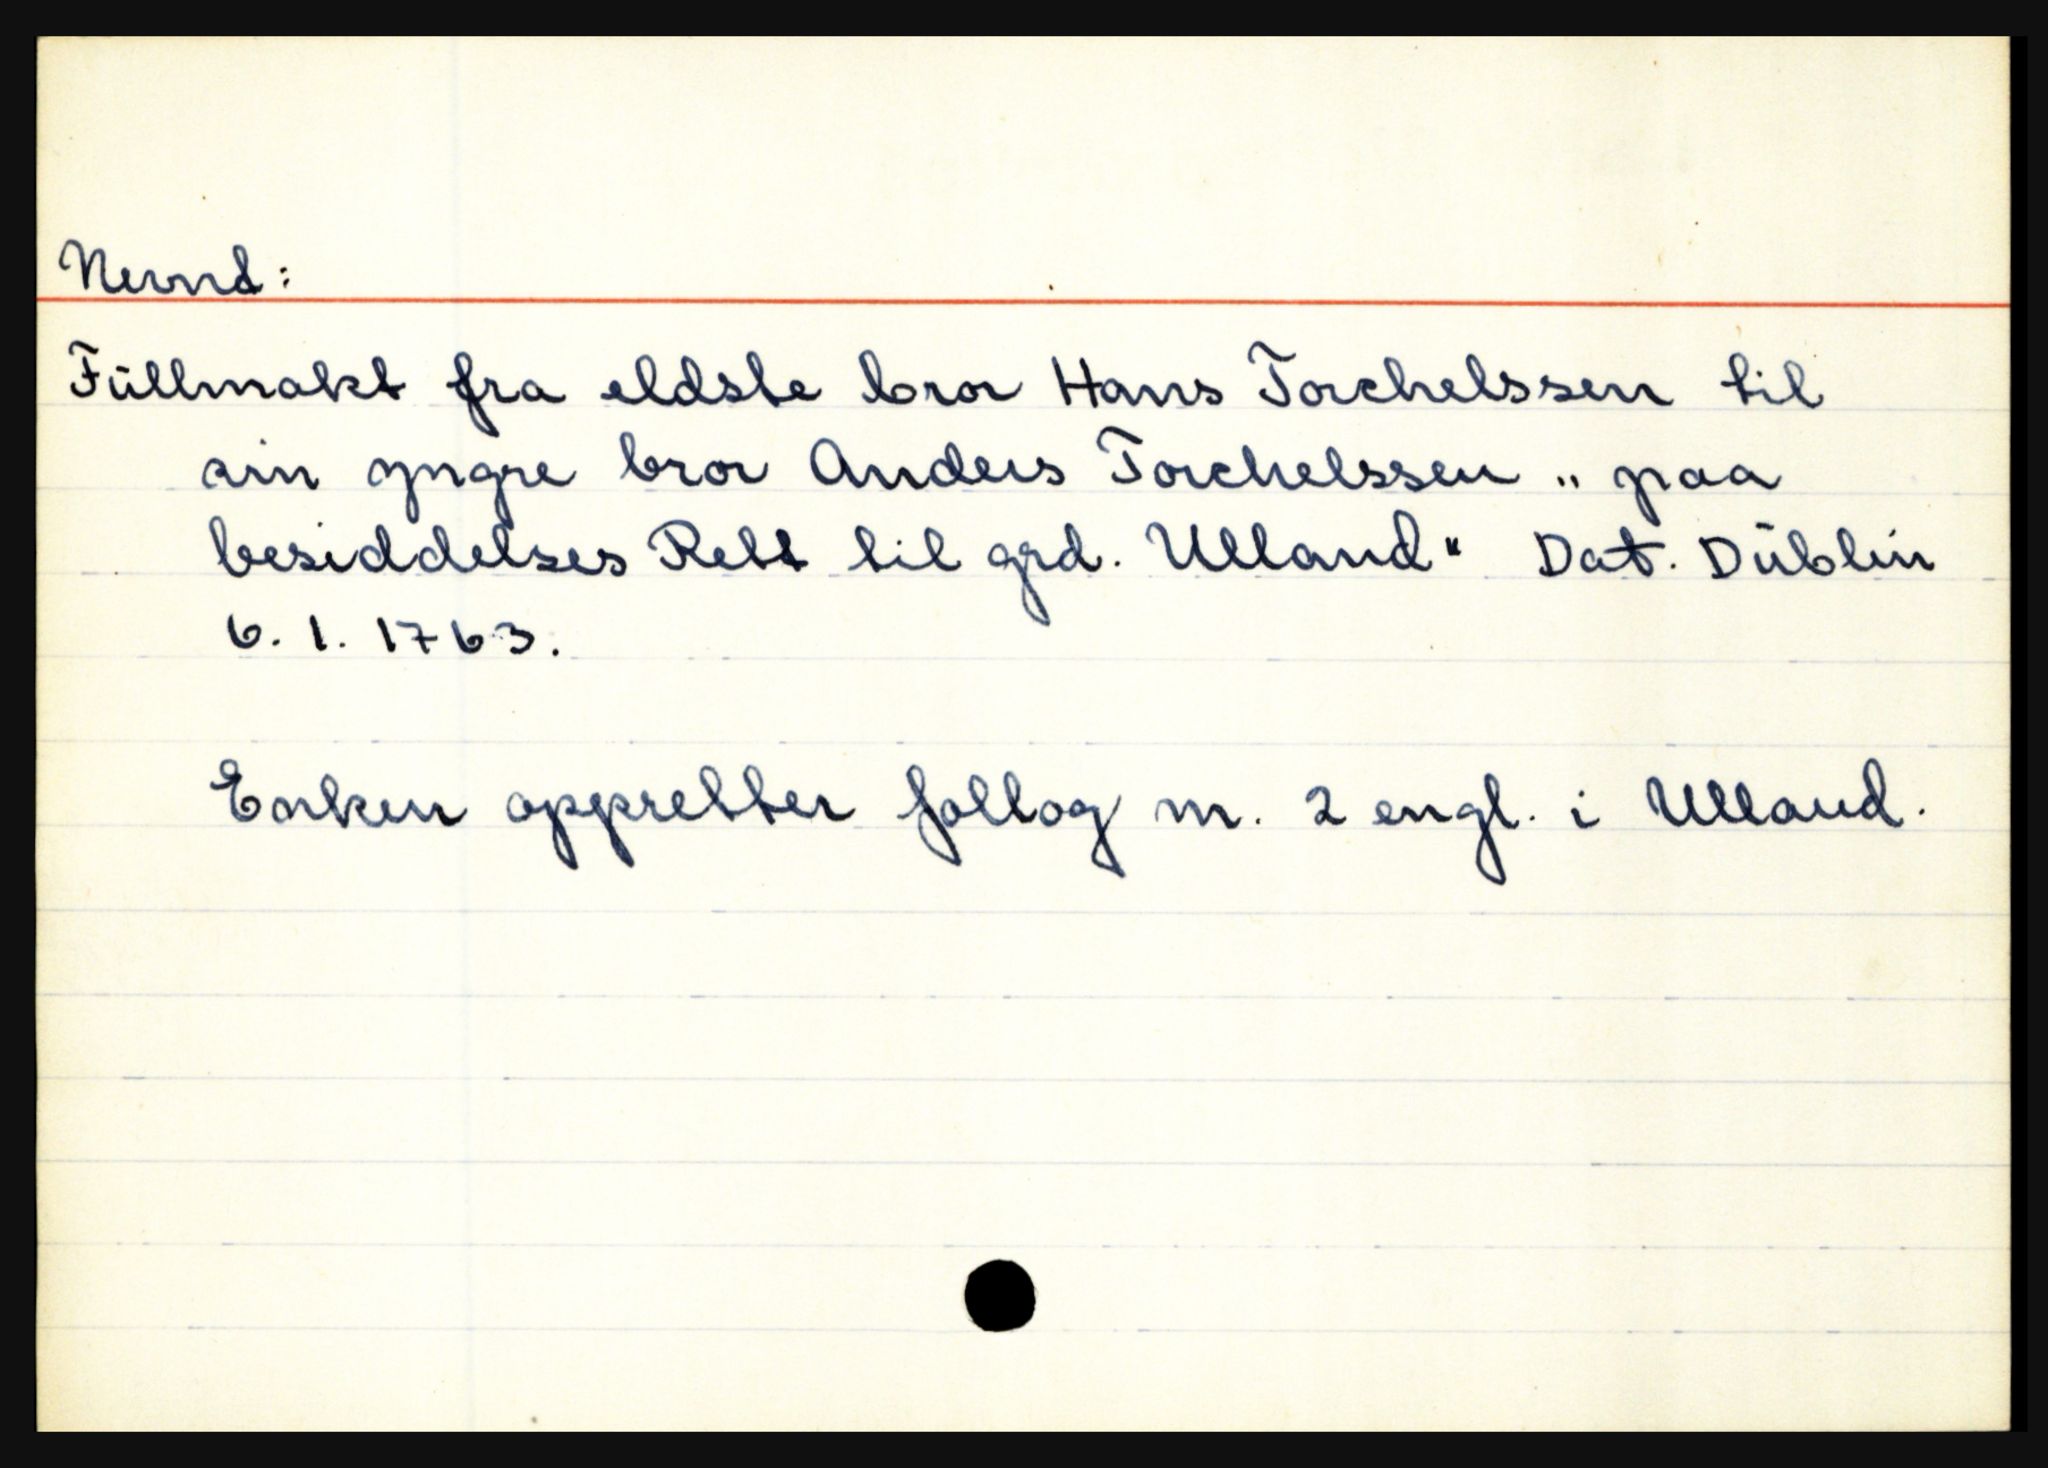 Nevnd:
Fullmakt fra eldste bror Hans Torchelssen til
sin yngre bror Anders Torchelssen „ paa
besiddelses Rett til grd. Ulland" Dat. Dublin
6. 1. 1763.
Enken oppretter follog m. 2 engl. i Ulland.